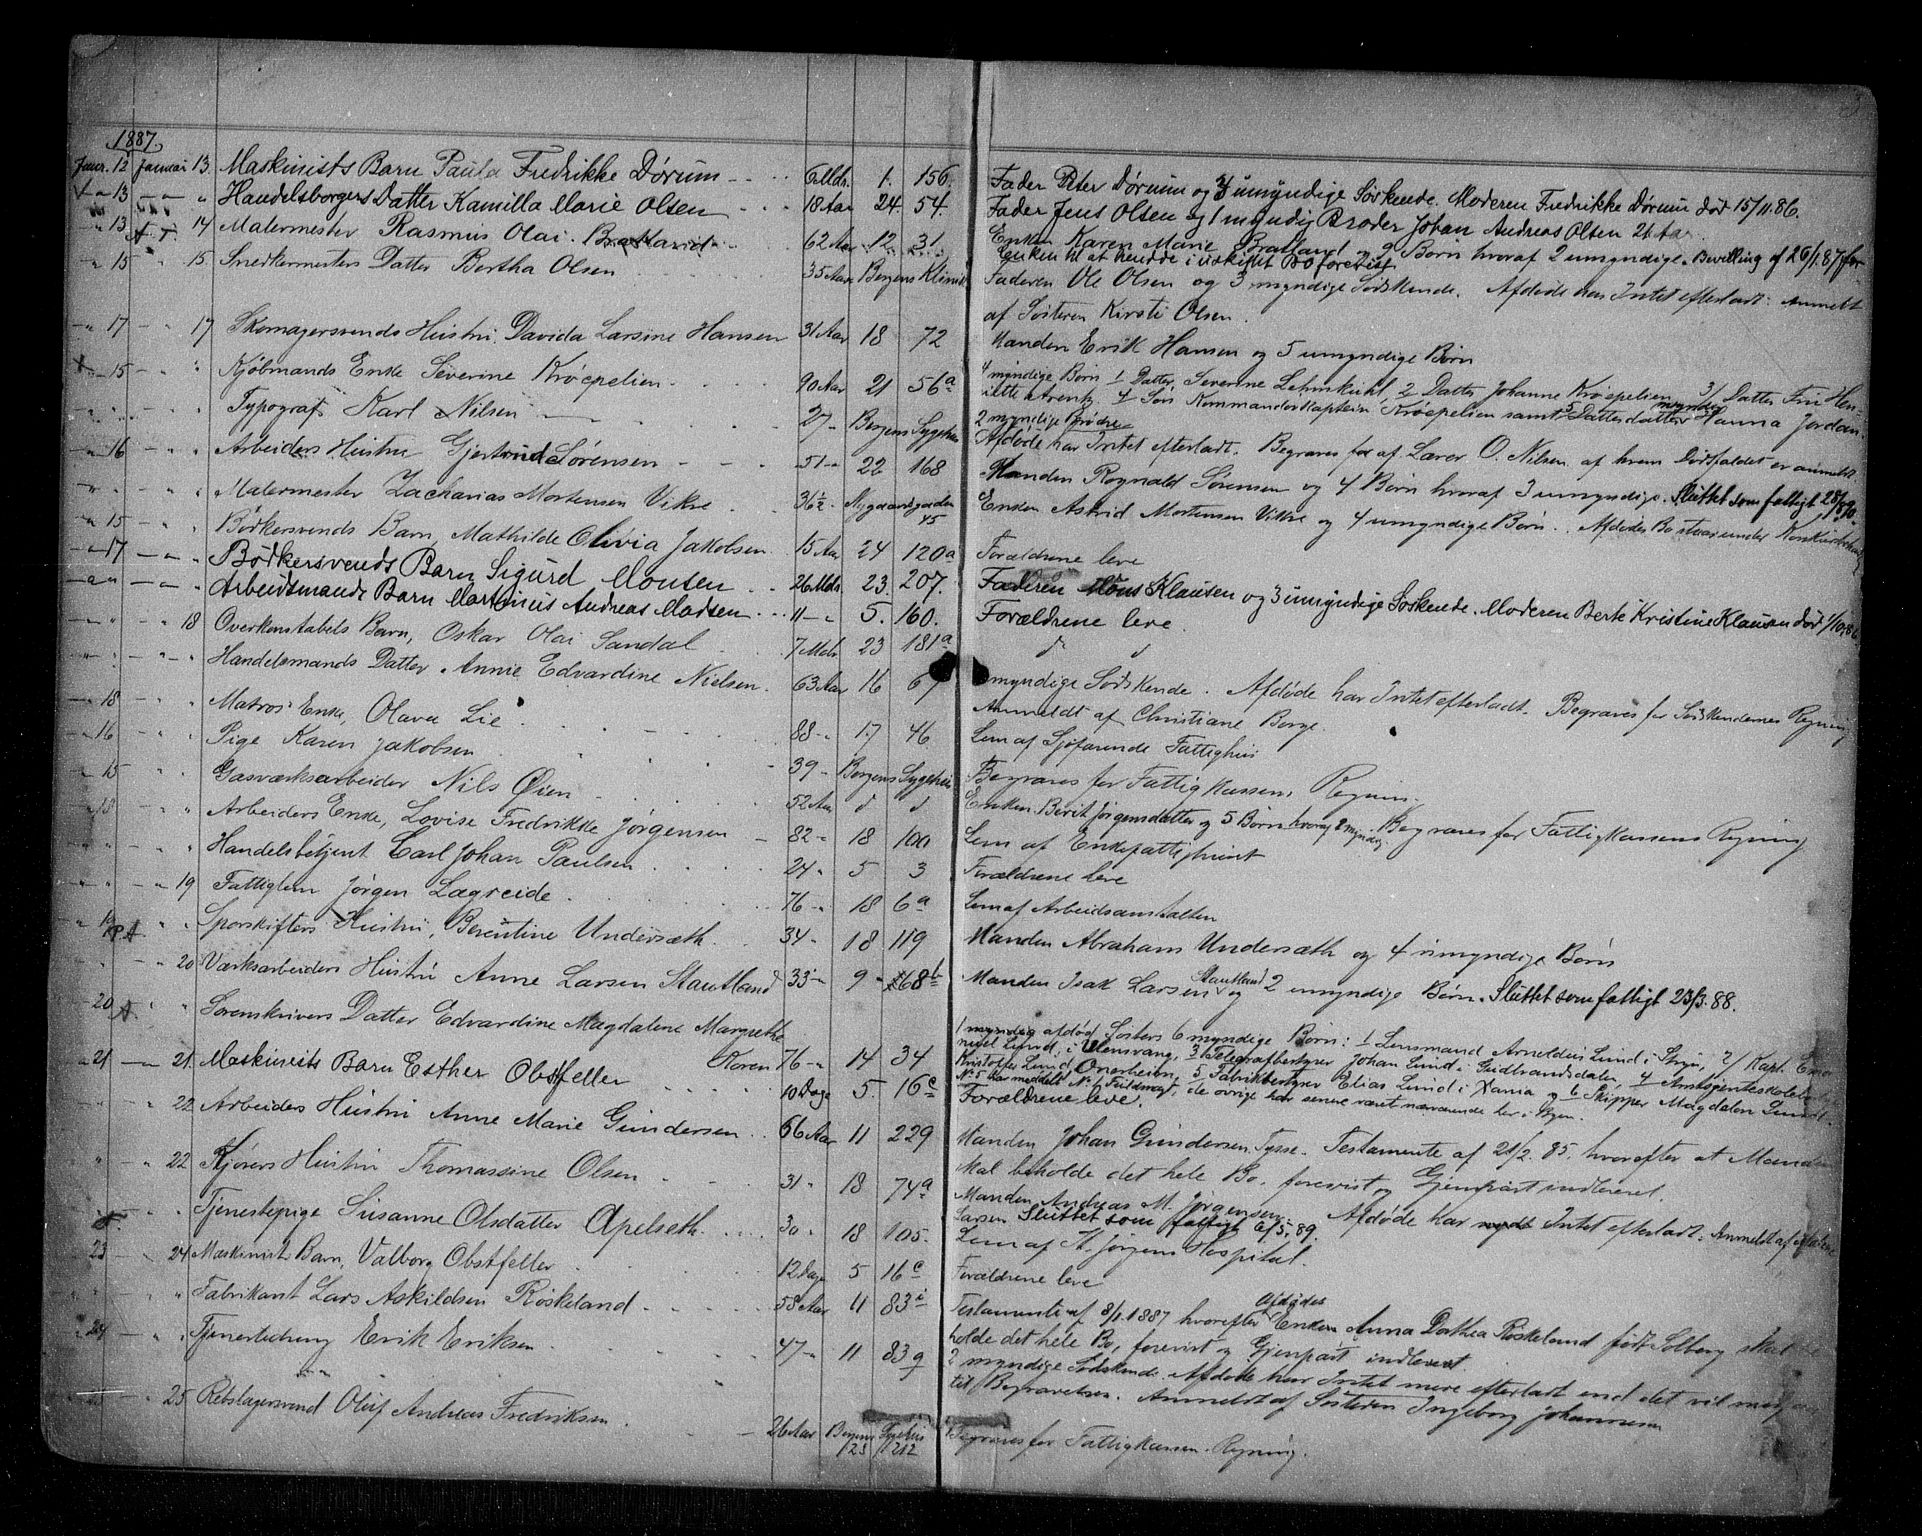 3
1887.
Januar. 12 Januar 13. Maskinists Barn Paula Fredrikke Dórum 6 Mdr. 1. 156. Fader Peter Dórum og 3 umyndige Söskende. Moderen Fredrikke Dórum död 15/11.86.
" 13 — " Handelsborgers Datter Kamilla Marie Olsen 18 Aar 24. 54. Fader Jens Olsen og 1 myndig Broder Johan Andreas Olsen 21 Aar.
" 13 14 Malermester Rasmus Olai Bratland 62 Aar 12 31 Enken Karen Marie Bratland og 9 Børn hvoraf 2 umyndige. Bevilling af 26/1.87 for
Enken til at hendde i uskiftet Bo forevist
" 15 15. Snedkermesters Datter Bertha Olsen 35 Aar Bergens Klinik Faderen Ole Olsen og 3 myndige Sødskende. Afdøde har Intet efterladt. Anmeldt
af Søsteren Kirsti Olsen.
" 17 — " 17 Skomagersvends Hustru Davida Larsine Hansen 31 Aar 18 72 Manden Erik Hansen og 5 umyndige Børn
" 15 — " Kjøbmands Enke Severine Krøepelien 90 Aar 21 56a 4 myndige Børn 1/ Datter Severine Lehmkuhl, 2/ Datter Johanne Krøepelien 3/ Datter Fru Hen-
4/ Søn Kommandørkaptein Krøepelien samt 5 Datterdatter myndig Hanna Jordan.
Typograf Karl Nilsen 27 " Bergens Sygehus 2 myndige Brødre
Afdøde har Intet efterladt. Begraves for af Lærer O. Nilsen af hvem Dødsfaldet er anmeldt
" 16 Arbeiders Hustru Gjertrud Sørensen 51 " 22 168 Manden Reynald Sørensen og 4 Børn hvoraf 3 umyndige. Sluttet som fattigt
Malermester Zacharias Mortensen Vikre 36 1/2 Nygaardsgaden 45 Enken Astrid Mortensen Vikre og 4 umyndige Børn. Afdødes Bo staar under Konkursbehandl
" 15 Bødkersvends Barn Mathilde Olivia Jakobsen 15 Aar 24 120a Forældrene leve
" 17 — " Bødkersvends Barn Sigurd Monsen 26 Mdr. 23. 207. Faderen Mons Klausen og 3 umyndige Søskende. Moderen Berte Kristine Klausen död 1/10.86
" " — " Arbeidsmands Barn Martinus Andreas Madsen 11 " 5. 160. Forældrene leve.
" " 18 Overkonstabels Barn, Oskar Olai Sandal 7 Mdr 23 181a d d
Handelsmands Datter Annie Edvardine Nielsen 63 Aar 16 67 myndige Sødskende. Afdøde har Intet efterladt. Begraves for Sødskendernes Regning
Anmeldt af Christiane Borge.
" 18 — " Matros Enke, Olava Lie 88 " 17 46 Lem af Sjøfarende Fattighus
" 16 Pige Karen Jakobsen 39 " Bergens Sygehus Begraves for Fattigkassens Regning.
" 15 Gasværksarbeider Nils Øien 52 Aar d d Enken Berit Jørgensdatter og 5 Børn hvoraf 2 myndig. Begraves for Fattigkassens Regning
" 18 Arbeiders Enke, Lovise Fredrikke Jørgensen 82 " 18 100 Lem af Enkefattighuset
Handelsbetjent Carl Johan Paulsen 24 " 5 3 Forældrene leve
" 19 Fattiglem Jørgen Lægreide 76 " 18 6a Lem af Arbeidsanstalten
" 19 Sporskifters Hustru, Berentine Undersæth 34 " 18 119 Manden Abraham Undersæth og 4 umyndige Børn
" 20 Værksarbeiders Hustru Anne Larsen Stautland 33 " 9 " 68b Manden Isak Larsen Stautland og 2 umyndige Børn. Sluttet som fattigt 23/3.88.
" 20 Sorenskrivers Datter Edvardine Magdalene Margrethe
Koren 76 " 14 34 1 myndig afdød Søsters 6 myndige Børn: 1/ Lensmand Arnoldus Lund i Stryn, 2/ Kapt. Ema-
nuel Lund i Ulensvang, 3 Telegrafbestyrer Johan Lund i Gudbrandsdalen, 4 Amtsgenteskolebestyr
Kristoffer Lund, Onarheim, 5 Fabrikbestyrer Elias Lund i Xania og 6 Skipper Magdalon Lund.
" 21 — " 21. Maskinists Barn Esther Obstfeller 10 Dage 5. 16c Forældrene leve.
" 22 Arbeiders Hustru Anne Marie Gundersen 66 Aar 11 229 Manden Johan Gundersen Tysse. Testamente af 21/2.85, hvorefter at Manden
skal beholde det hele Bo, forevist og Gjenpart indleveret.
" — " 22 Kjørers Hustru Thomassine Olsen 31 " 18 74a Manden Andreas M. Jørgensen. Afdøde har Intet efterladt. Anmeldt af
Larsen Sluttet som fattigt 6/5.89.
" " Tjenestepige Susanne Olsdatter Apelseth 30 " 18 105. Lem af St. Jørgens Hospital.
23 — " 24 Maskinist Barn, Valborg Obstfeller 12 Dage 5 16c Forældrene leve
" " Fabrikant Lars Askildsen Røskeland 58 Aar 11 83i Testamente af 8/1.1887 hvorefter Afdødes Enken Anna Dorthea Røskeland født Solberg skal be-
holde det hele Bo, forevist og Gjenpart indleveret.
" 24 — " Tjenestedreng Erik Eriksen 47 " 11 83g 2 myndige Sødskende. Afdøde har Intet mere efterladt end det vil medgaa
til Begravelsen. Anmeldt af Søsteren Ingeborg Johannesen
" 25 Rebslagersvend Oluf Andreas Fredriksen 26 Aar Bergens Sygehus 23/212 Begraves for Fattigkassens Regning.